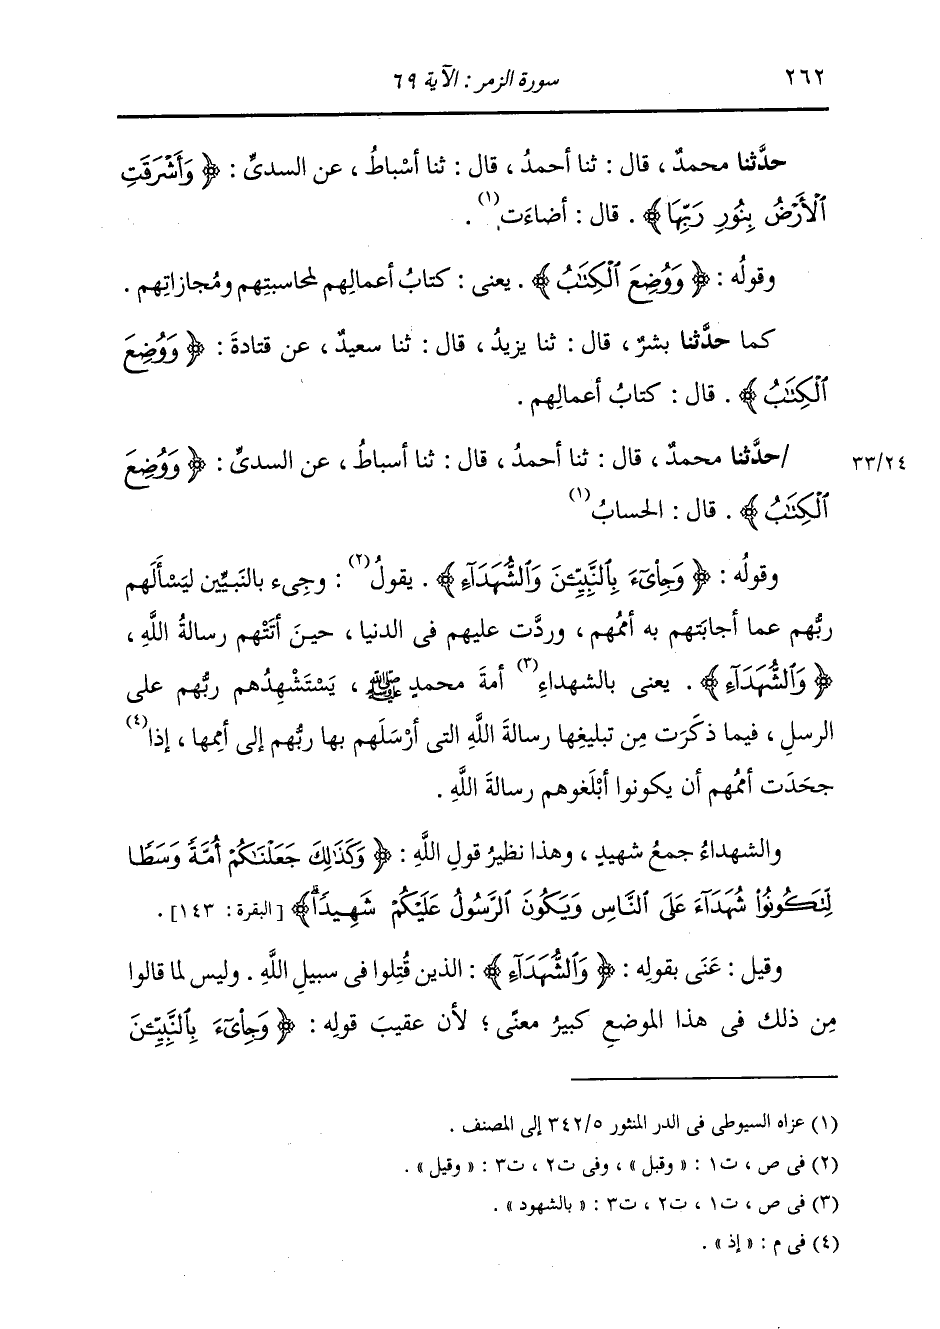 ٢٦٢ سورة الزمر : الآية ٦٩
حدَّثنا محمدٌ ، قال : ثنا أحمدُ ، قال : ثنا أسْباطُ ، عن السدىِّ : ﴿ وَأَشْرَقَتِ
ٱلْأَرْضُ بِنُورِ رَبِّهَا ﴾ . قال : أضاءَت(١) .
وقولُه : ﴿ وَوُضِعَ ٱلْكِتَٰبُ ﴾ . يعنى : كتابُ أعمالِهم لمحاسبتِهم ومُجازاتِهم .
كما حدَّثنا بشرٌ ، قال : ثنا يزيدُ ، قال : ثنا سعيدٌ ، عن قتادةَ : ﴿ وَوُضِعَ
ٱلْكِتَٰبُ ﴾ . قال : كتابُ أعمالِهم .
/حدَّثنا محمدٌ ، قال : ثنا أحمدُ ، قال : ثنا أسباطُ ، عن السدىِّ : ﴿ وَوُضِعَ ٣٣/٢٤
ٱلْكِتَٰبُ ﴾ . قال : الحسابُ(١)
وقولُه : ﴿ وَجِاْىٓءَ بِٱلنَّبِيِّـۧنَ وَٱلشُّهَدَآءِ ﴾ . يقولُ(٢) : وجىء بالنبيِّين ليَسْأَلَهم
ربُّهم عما أجابَتهم به أممُهم ، وردَّت عليهم فى الدنيا ، حينَ أتَتْهم رسالةُ اللَّهِ ،
﴿ وَٱلشُّهَدَآءِ ﴾ . يعنى بالشهداءِ(٣) أمةَ محمدٍ ﷺ ، يَسْتَشْهِدُهم ربُّهم على
الرسلِ ، فيما ذكَرَت مِن تبليغِها رسالةَ اللَّهِ التى أرْسَلَهم بها ربُّهم إلى أممِها ، إذا(٤)
جحَدَت أممُهم أن يكونوا أبْلَغوهم رسالةَ اللَّهِ .
والشهداءُ جمعُ شهيدٍ ، وهذا نظيرُ قولِ اللَّهِ : ﴿ وَكَذَٰلِكَ جَعَلْنَٰكُمْ أُمَّةً وَسَطًا
لِّتَكُونُوا۟ شُهَدَآءَ عَلَى ٱلنَّاسِ وَيَكُونَ ٱلرَّسُولُ عَلَيْكُمْ شَهِيدًاۗ ﴾ [البقرة : ١٤٣] .
وقيل : عَنَى بقولِه : ﴿ وَٱلشُّهَدَآءِ ﴾ : الذين قُتِلوا فى سبيلِ اللَّهِ . وليس لما قالوا
مِن ذلك فى هذا الموضعِ كبيرُ معنًى ؛ لأن عقيبَ قولِه : ﴿ وَجِاْىٓءَ بِٱلنَّبِيِّـۧنَ
(١) عزاه السيوطى فى الدر المنثور ٣٤٢/٥ إلى المصنف .
(٢) فى ص ، ت١ : « وقبل » ، وفى ت٢ ، ت٣ : « وقيل » .
(٣) فى ص ، ت١ ، ت٢ ، ت٣ : « بالشهود » .
(٤) فى م : « إذ » .